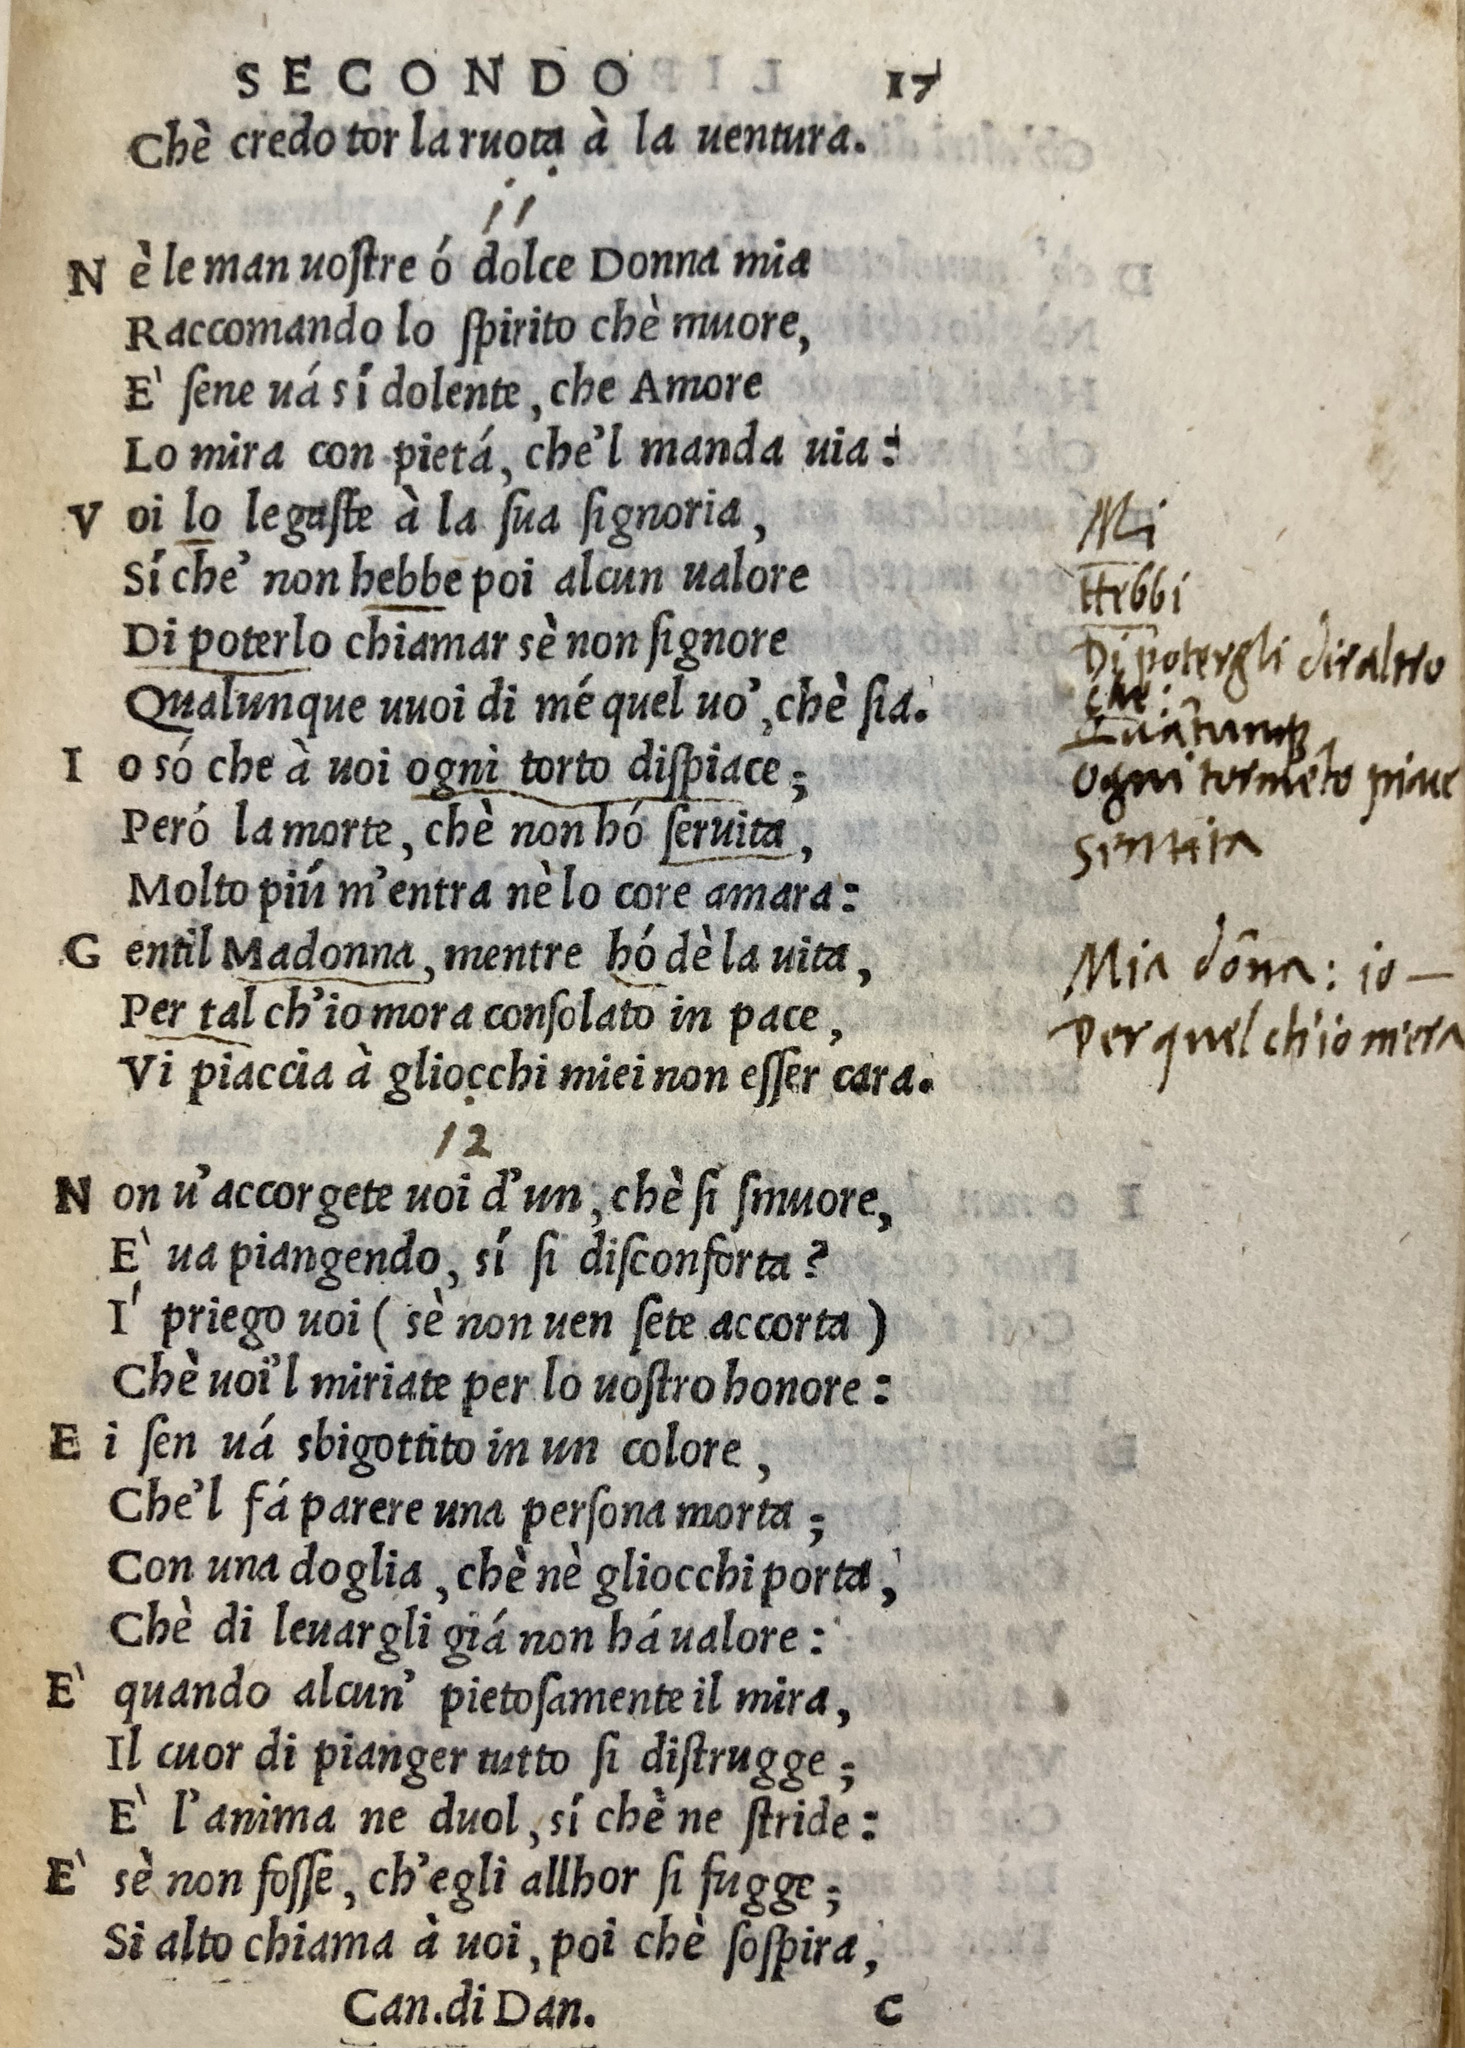 SECONDO 17
Chè credo tor la ruota à la uentura.
11
Nè le man uoſtre ó dolce Donna mia
Raccomando lo ſpirito chè muore,
E' ſene uá sí dolente, che Amore
Lo mira con pietá, che'l manda uia:
Voi lo legaſte à la ſua ſignoria,
Sí che' non hebbe poi alcun ualore
Di poterlo chiamar sè non ſignore
Qualunque uuoi di mé quel uo', chè ſia.
Io só che à uoi ogni torto diſpiace;
Peró la morte, chè non hó ſeruita,
Molto piú m'entra nè lo core amara:
Gentil Madonna, mentre hó dè la uita,
Per tal ch'io mora conſolato in pace,
Vi piaccia à gliocchi miei non eſſer cara.
Mi
Hebbi
Di potergli dir altro
che:
Quātunq
Ogni tormēto piace
Sentita
Mia dōna: io —
Per quel ch'io mera
12
Non u'accorgete uoi d'un, chè ſi ſmuore,
E' ua piangendo, sí ſi diſconforta?
I' priego uoi (sè non uen ſete accorta)
Chè uoi'l miriate per lo uoſtro honore:
Ei ſen uá sbigottito in un colore,
Che'l fá parere una perſona morta;
Con una doglia, chè nè gliocchi porta,
Chè di leuargli giá non há ualore:
E' quando alcun' pietoſamente il mira,
Il cuor di pianger tutto ſi diſtrugge;
E' l'anima ne duol, sí chè ne ſtride:
E' sè non foſſe, ch'egli allhor ſi fugge;
Si alto chiama à uoi, poi chè ſoſpira,
Can. di Dan. C